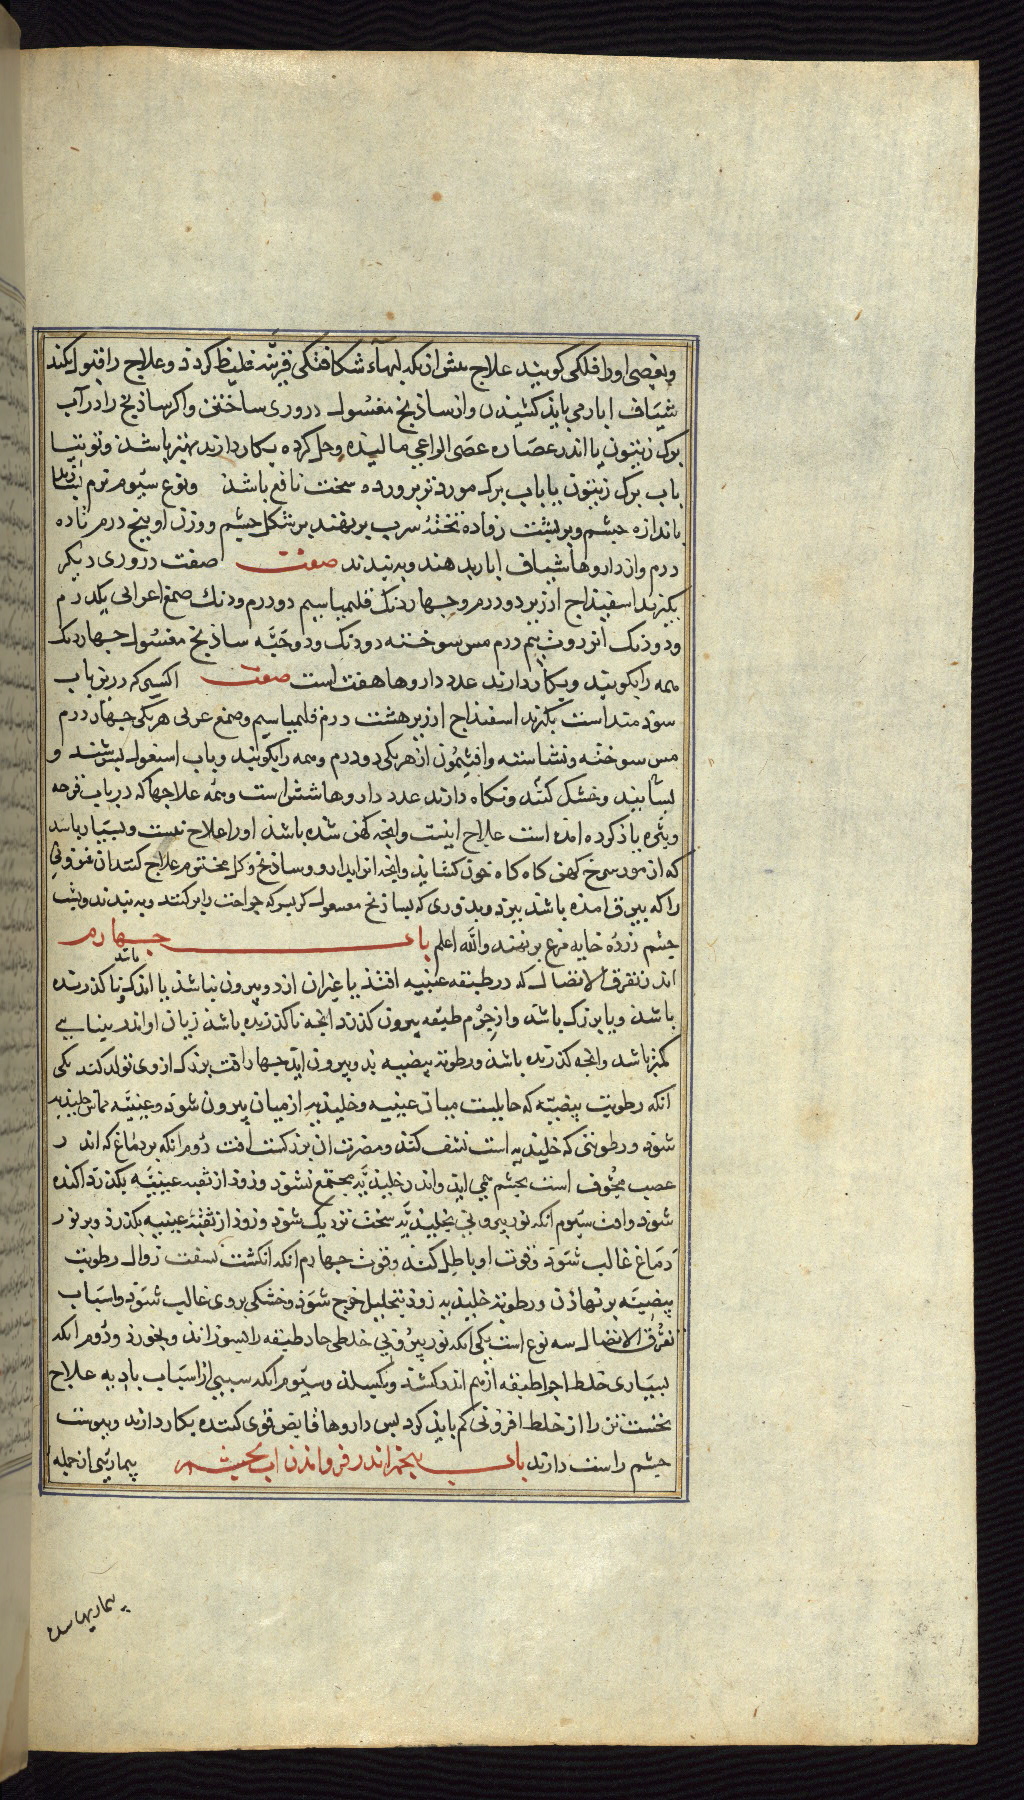 وبعضی اورا فلکی گویند علاج پیش از انکه لبهاء شکافتگی قرینه غلیظ کردد وعلاج را قبول نکند
شیاف ابار می باید کشیدن واز ساذنج مغسول دروری ساختن واکر ساذنج را در آب
برک زیتون یا اندر عصاره عصی الراعی مالیده وحل کرده بکار دارند بهتر باشد وتوتیا
باب برک زیتون یا باب برک مورد تر پرورده سخت نافع باشد ونوع سیوم نرم
باندازه چشم وبر پشت رفاده تختهٔ سرب بر نهند بر شکل چشم ووزن او پنج درم تا ده
درم واز داروها شیاف ابار بر نهند وبه بندند صفت صفت دروری دیکر
بکیرند اسفیذاج ارزیز دو درم وچهار دنک قلیمیا سیم دو درم ودنک صمغ اعرابی یکدرم
ودو دنک انزروت نیم درم مس سوخته دو دنک ودو حبه ساذنج مغسول چهار دنک
همه را بکوبند وبکار دارند عدد داروها هفت است صفت اکسیری که درین باب
سودمند است بکیرند اسفیذاج ارزیز هشت درم قلیمیا سیم وصمغ عربی هر یکی چهار درم
مس سوخته ونشاسته وافیون از هر یکی دو درم وهمه را بکوبند وباب اسبغول بسرشند و
بسایند وخشک کنند ونکاه دارند عدد داروها شش است وهمه علاجها که در باب قرحه
وبثره یاذ کرده امده است علاج اینست وانچه کهن شده باشد اورا علاج نیست وبسیار باشد
که از مورسرج کهن کاه کاه خون کشاید وساذنج وکل مختوم علاج کنند ان فزونی
را که بیرون امده باشد ببرند وبدروری که بساذنج مغسول که جراحت را بر کنند وبه بندند وپشت
چشم زرده خایه مرغ بر نهند والله اعلم باب چهارم
اندر تفرق الاتصال که در طبقه عنبیه افتد یا غیران از دو بیرون نباشد یا اندک باشد ناکذرنده
باشد ویا بزرک باشد واز جرم طبقه بیرون کذرد انچه ناکذرنده باشد زیان او اندر بینایی
کمتر باشد وانچه کذرنده باشد ورطوبت بیضیه بدو بیرون اید چهار افت بزرک از وی تولد کند یکی
انکه رطوبت بیضیه که حایلست میان عنبیه وجلیدیه از میان بیرون شود وعنبیه مماس جلیدیه
شود ورطوبتی که جلیدیه است نشف کند ومضرت ان بزرکست افت دوم انکه بر دماغ که اندر
عصب مجوف است بچشم همی اید واندر جلیدیه مجتمع نشود وزود از ثقبه عنبیه بکذرد وپراکنده
شود وافت سیوم انکه نور بیرونی بجلیدیه سخت نزدیک شود وزود از ثقبه عنبیه بکذرد وبر نور
دماغ غالب شود وقوت او باطل کند وقوت چهارم انکه انکشت بسفت زوال رطوبت
بیضیه بر نهاذن ورطوبت جلیدیه زود بتحلیل خرج شود وخشکی بروی غالب شود واسباب
تفرق الاتصال سه نوع است یکی انکه نور بیرونی خلطی حاد طبقه را بسوزاند وبخورد ودوم انکه
بسیاری خلط اجزا طبقه از هم اندر کشد وبکسلد وسیوم انکه سببی از اسباب بادیه علاج
نخست تن را از خلط افزونی کم باید کرد پس داروها قابض قوی کننده بکار دارند وپیوست
چشم راست دارند باب پنجم اندر فرو امدن اب بچشم بیماریئی از جمله
بیماریها سده